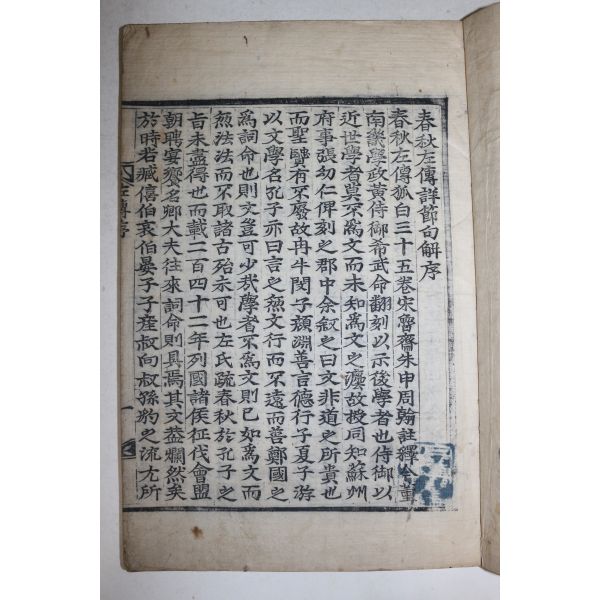 春秋左傳詳節句解序
春秋左傳狐白三十五卷宋魯齋朱申周翰註釋今董
南畿學政黃侍御希武命翻刻以示後學者也侍御以
近世學者莫不爲文而未知爲文之灋故授同知蘇州
府事張幼仁俾刻之郡中余叙之曰文非道之所貴也
而聖賢有不廢故冉牛閔子顔淵善言德行子夏子游
以文學名孔子亦曰言之無文行而不遠而善鄭國之
爲詞命也則文豈可少哉學者不爲文則已如爲文而
無法法而不取諸古殆未可也左氏疏春秋於孔子之
旨未盡得也而載二百四十二年列國諸侯征伐會盟
朝聘宴饗名卿大夫往來詞命則具焉其文葢爛然矣
於時若臧僖伯哀伯晏子子產叔向叔孫豹之流尢所
左傳序
一